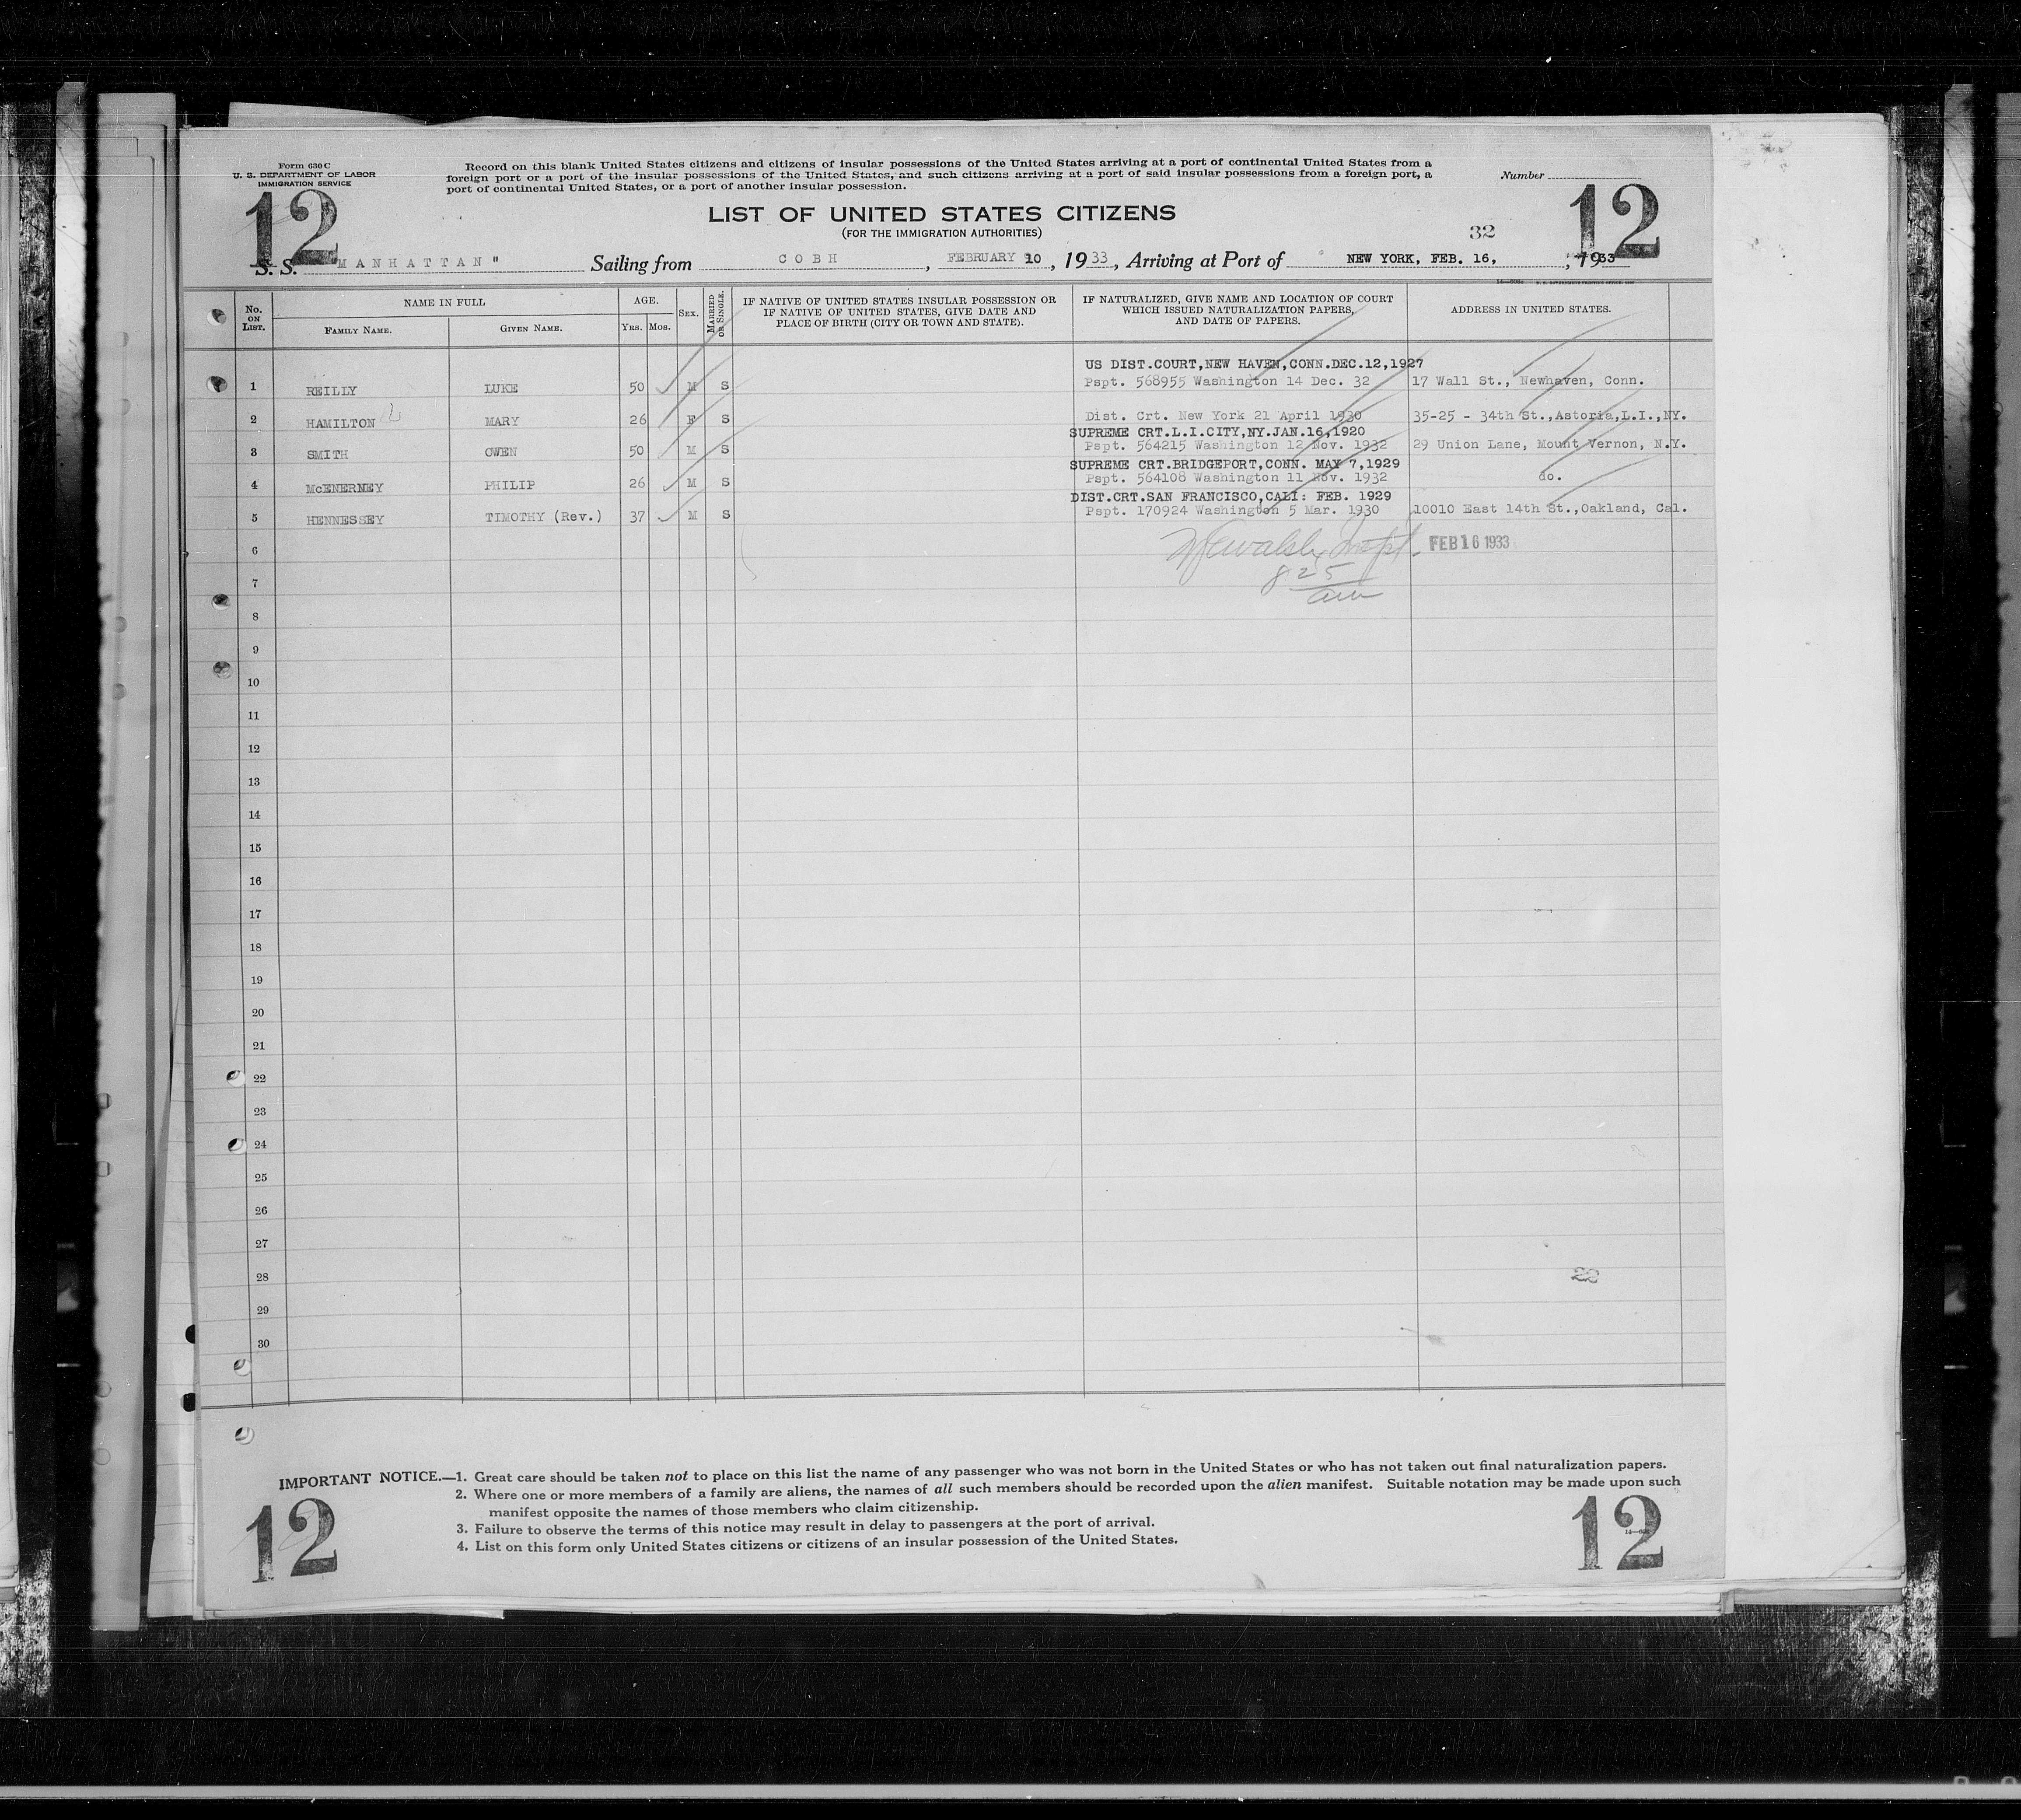 Form 630 C
U. S. DEPARTMENT OF LABOR
IMMIGRATION SERVICE
Record on this blank United States citizens and citizens of insular possessions of the United States arriving at a port of continental United States from a
foreign port or a port of the insular possessions of the United States, and such citizens arriving at a port of said insular possessions from a foreign port, a
port of continental United States, or a port of another insular possession.
Number
12
12
LIST OF UNITED STATES CITIZENS
(FOR THE IMMIGRATION AUTHORITIES)
32
S. S. MANHATTAN" Sailing from COBH, FEBRUARY 10, 1933, Arriving at Port of NEW YORK, FEB. 16, , 1933
No. ON LIST.
NAME IN FULL
FAMILY NAME.
GIVEN NAME.
AGE.
YRS.
MOS.
SEX.
MARRIED OR SINGLE.
IF NATIVE OF UNITED STATES INSULAR POSSESSION OR
IF NATIVE OF UNITED STATES, GIVE DATE AND
PLACE OF BIRTH (CITY OR TOWN AND STATE).
IF NATURALIZED, GIVE NAME AND LOCATION OF COURT
WHICH ISSUED NATURALIZATION PAPERS,
AND DATE OF PAPERS.
ADDRESS IN UNITED STATES.
US DIST.COURT,NEW HAVEN,CONN.DEC.12,1927
1 REILLY LUKE 50 M S Pspt. 568955 Washington 14 Dec. 32 17 Wall St., Newhaven, Conn.
2 HAMILTON MARY 26 F S Dist. Crt. New York 21 April 1930 35-25 - 34th St.,Astoria,L.I.,NY.
SUPREME CRT.L.I.CITY,NY.JAN.16,1920
3 SMITH OWEN 50 M S Pspt. 564215 Washington 12 Nov. 1932 29 Union Lane, Mount Vernon, N.Y.
SUPREME CRT.BRIDGEPORT,CONN. MAY 7,1929
4 McENERNEY PHILIP 26 M S Pspt. 564108 Washington 11 Nov. 1932 do.
DIST.CRT.SAN FRANCISCO,CALI: FEB. 1929
5 HENNESSEY TIMOTHY (Rev.) 37 M S Pspt. 170924 Washington 5 Mar. 1930 10010 East 14th St.,Oakland, Cal.
6 Walsh Inspt. FEB 16 1933
825
7
8
9
10
11
12
13
14
15
16
17
18
19
20
21
22
23
24
25
26
27
28
22
29
30
IMPORTANT NOTICE.—1. Great care should be taken not to place on this list the name of any passenger who was not born in the United States or who has not taken out final naturalization papers.
2. Where one or more members of a family are aliens, the names of all such members should be recorded upon the alien manifest. Suitable notation may be made upon such
manifest opposite the names of those members who claim citizenship.
3. Failure to observe the terms of this notice may result in delay to passengers at the port of arrival.
4. List on this form only United States citizens or citizens of an insular possession of the United States.
12
12